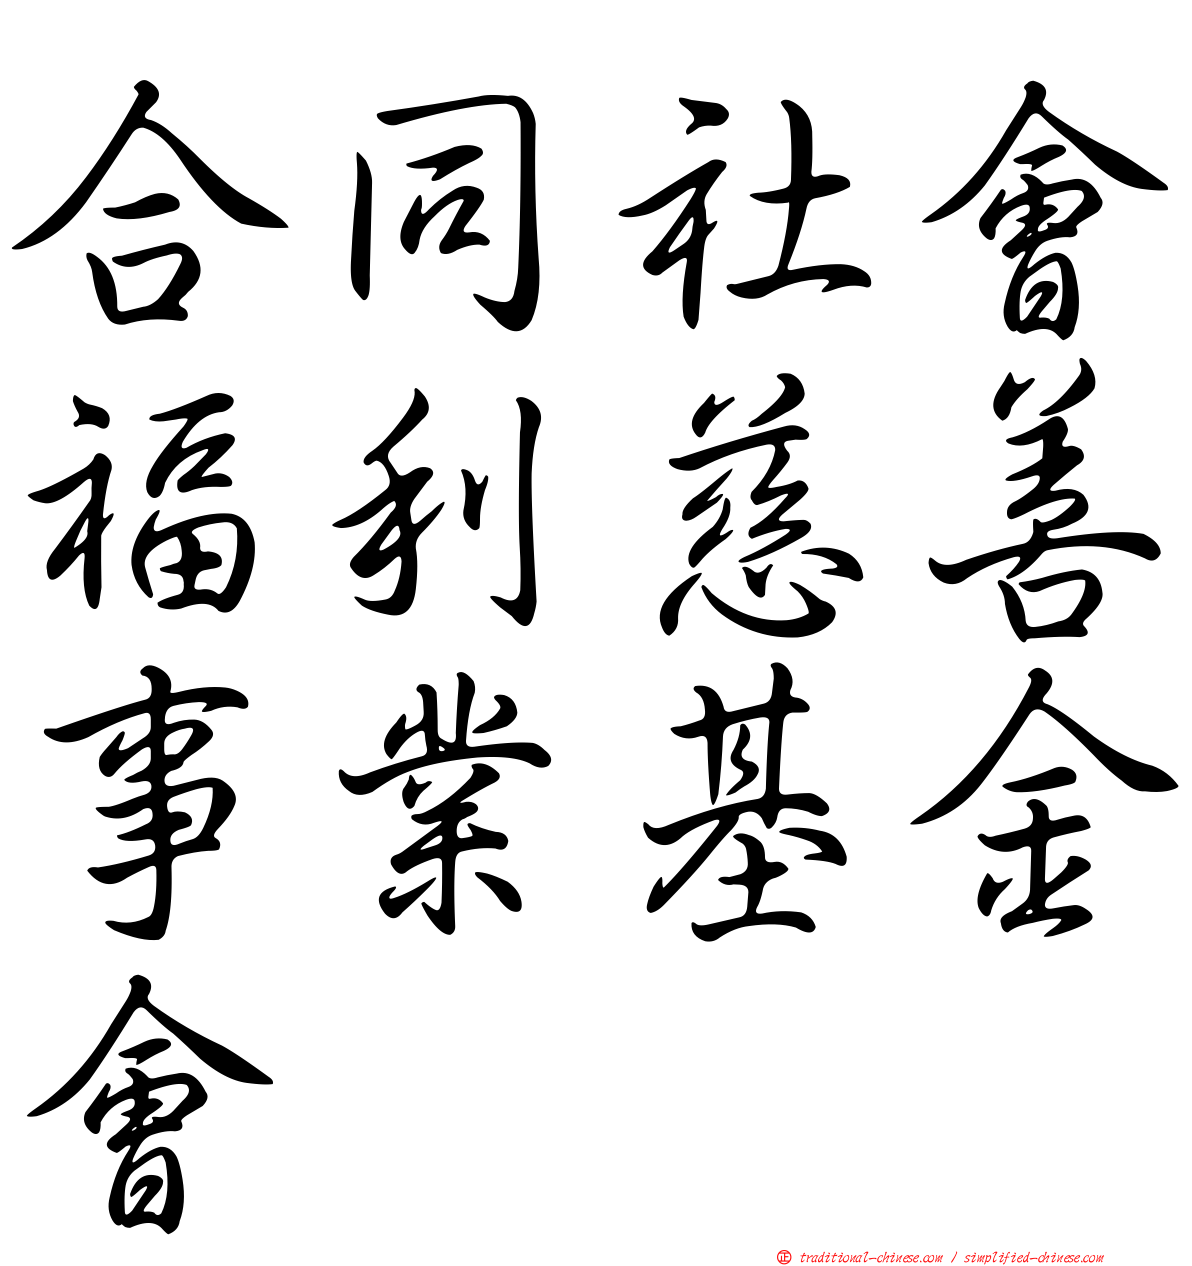 合同社會
福利慈善
事業基金
會
㊣ traditional-chinese.com / simplified-chinese.com